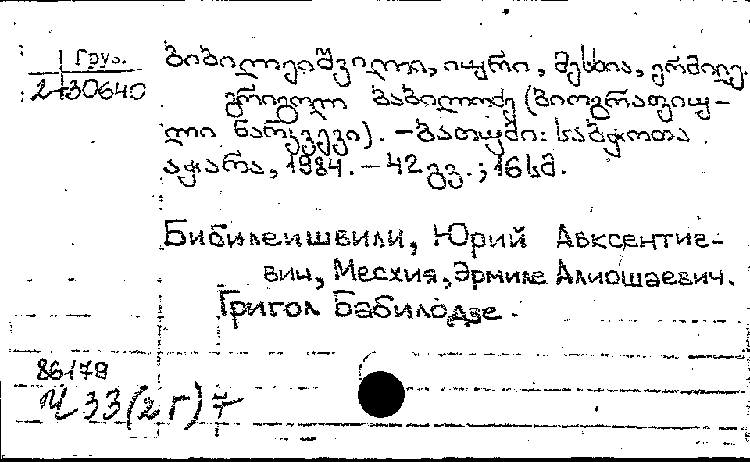 Груз.
2-130640
ბიბილეიშვილი, იური, მესხია, ერმილე.
გრიგოლ ბაბილოძე (ბიოგრაფიუ-
ლი ნარკვევი). – ბათუმი: საბჭოთა
აჭარა, 1984. – 42 გვ.; 16 სმ.
Бибилеишвили, Юрий Авксентие-
вич, Месхия, Эрмиле Алиошаевич.
Григол Бабилодзе.
86178
Ч 33(2Г)7